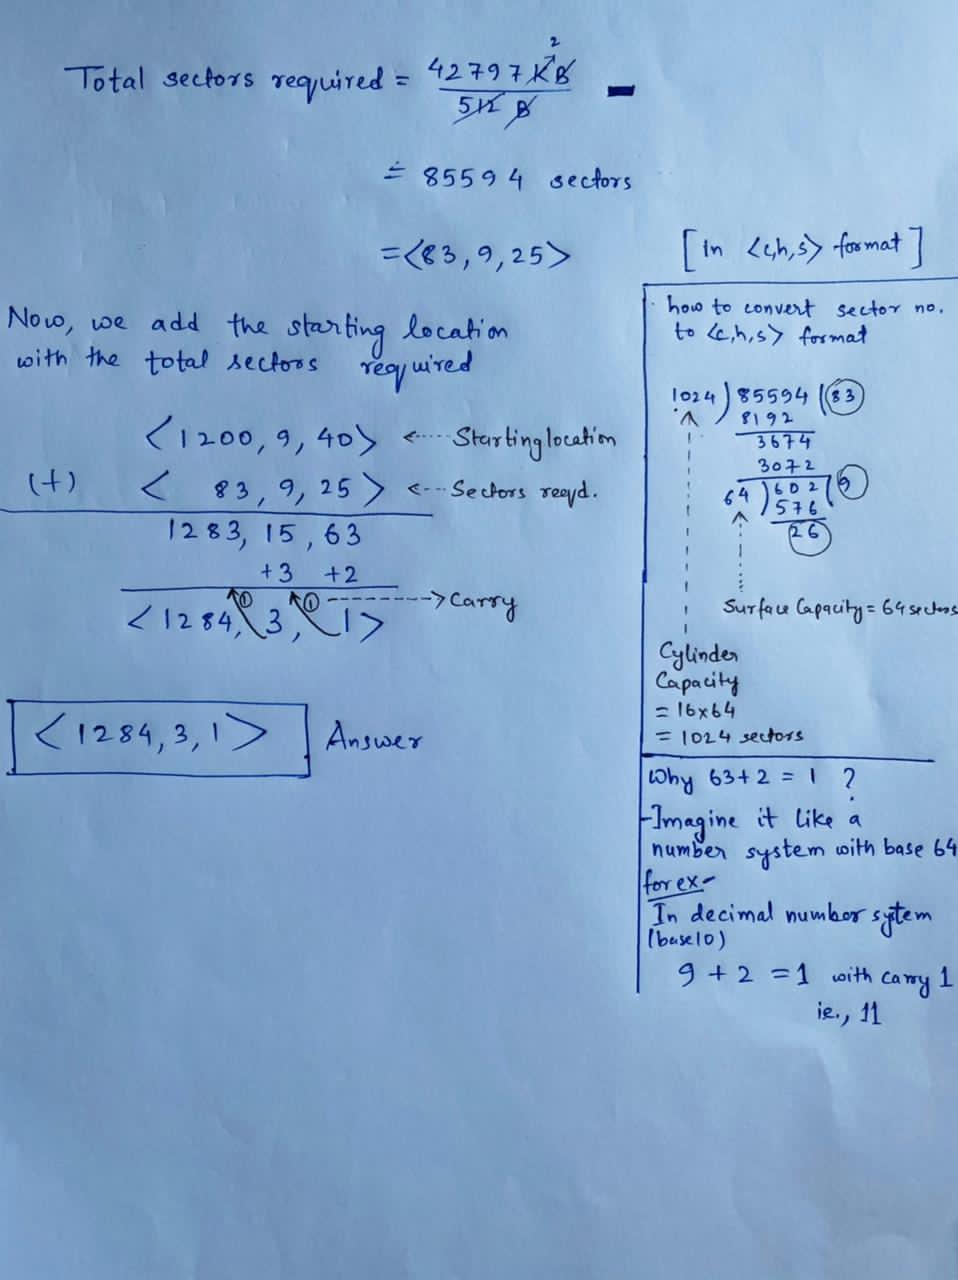 Total sectors required = 42797 KB / 512 B
2
= 85594 sectors
= <83, 9, 25>
[In <c,h,s> format]
Now, we add the starting location
with the total sectors required
<1200, 9, 40> <---- Starting location
(+) < 83, 9, 25> <--- Sectors reqyd.
1283, 15, 63
+3 +2
① ① -------> Carry
<1284, 3, 1>
<1284, 3, 1> Answer
how to convert sector no.
to <c,h,s> format
1024 ) 85594 ( 83
8192
3674
3072
64 ) 602 ( 9
576
26
Surface Capacity = 64 sectors
Cylinder
Capacity
= 16x64
= 1024 sectors
Why 63+2 = 1 ?
- Imagine it like a
number system with base 64
for ex-
In decimal number sytem
(base 10)
9 + 2 = 1 with carry 1
ie., 11